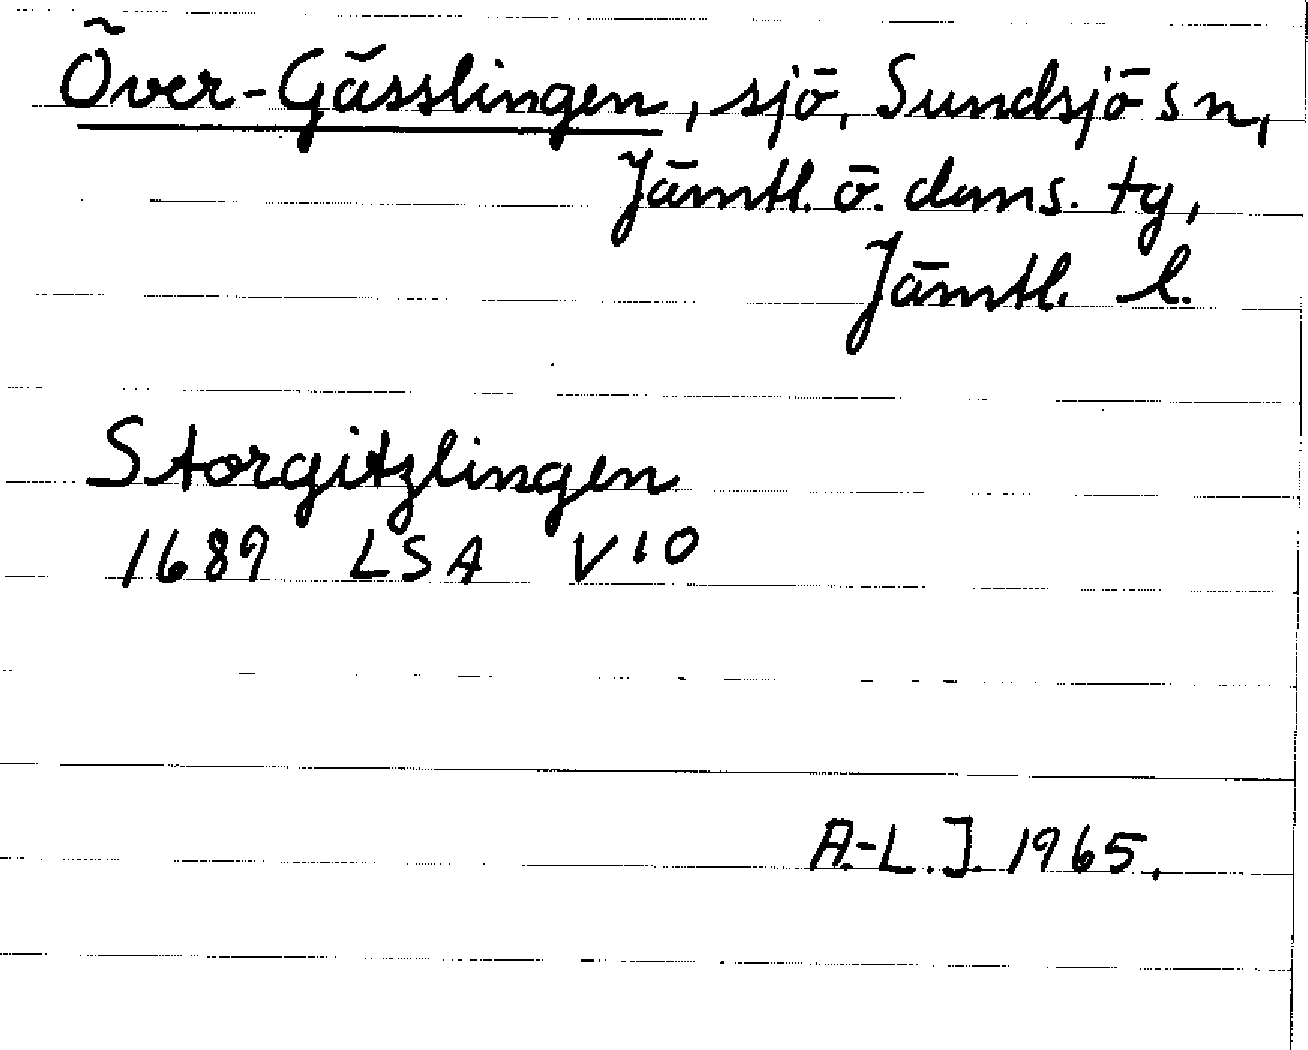 Över-Gässlingen, sjö, Sundsjö sn,
Jämtl. ö. doms. tg,
Jämtl. l.
Storgitzlingen
1689 LSA V10
A.-L.J. 1965.